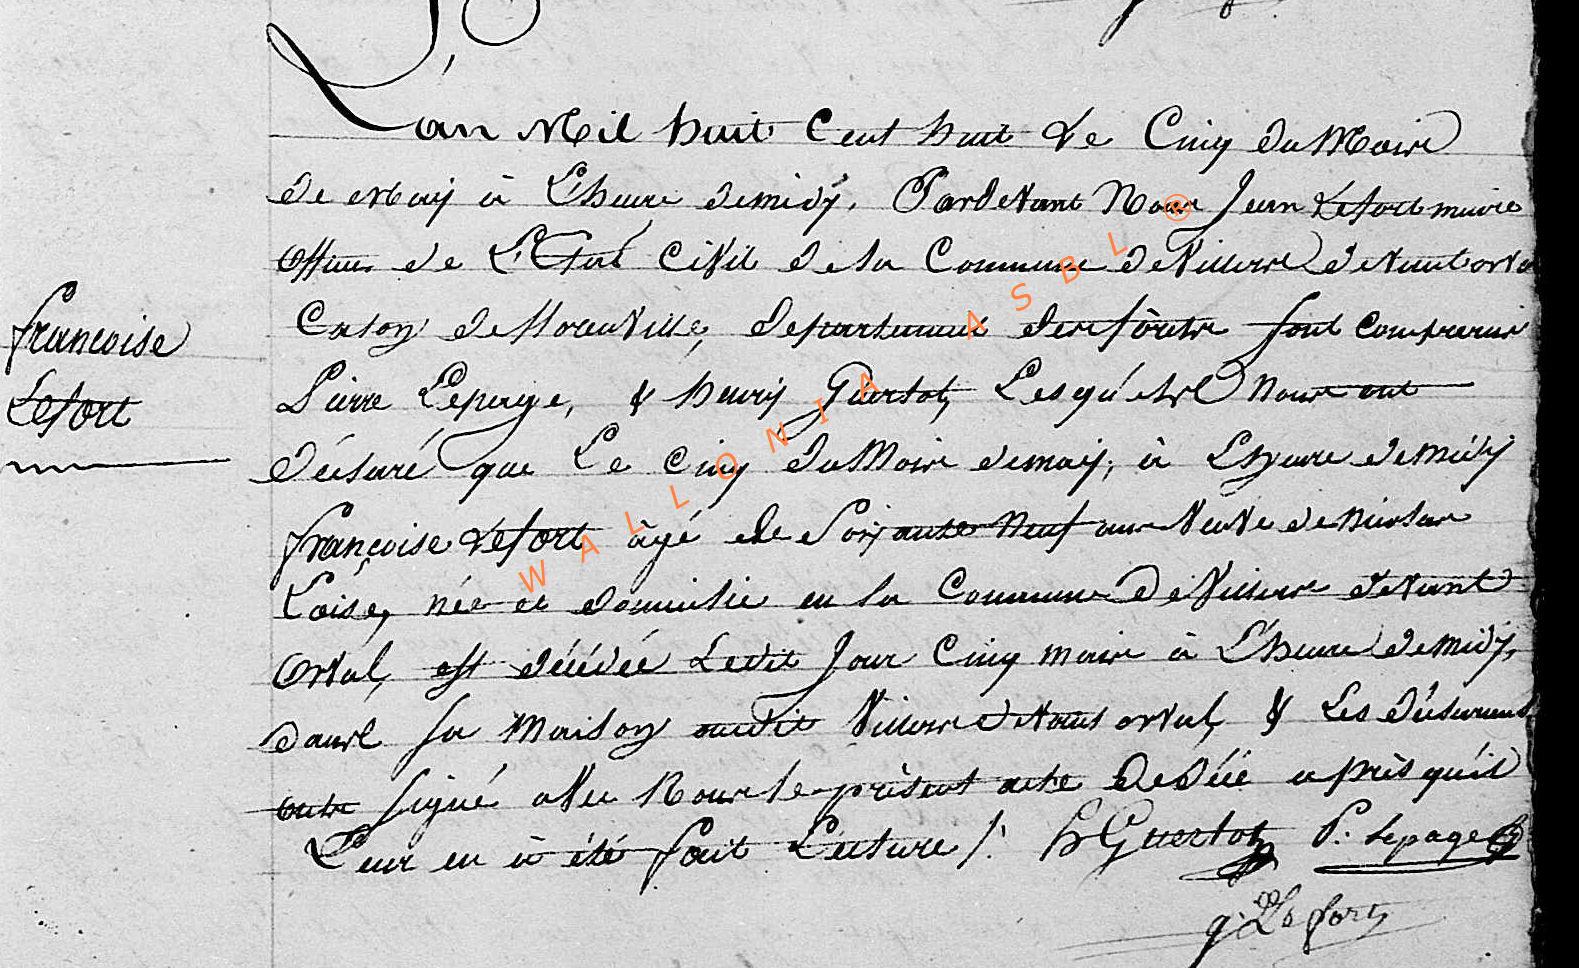 L'an Mil huit Cent huit Le Cinq du Mois
de may à L'heure de midy. Pardevant Nous Jean Lefort maire
officier de L'Etat Civil de la Commune de Villers devant orval
Caton de florenville, departement des forêts sont comparus
Françoise
Lefort
Pierre Lepage, & henry Guertot, Lesquels Nous ont
déclaré que Le Cinq du Mois de may, à L'heure de Midy
françoise Lefort âgé de Soixante Neuf ans Veuve de
Loise, née et domicilié en la Commune de Villers devant
Orval, est décédée Ledit Jour Cinq mois à L'heure de midy,
dans sa Maison audit Villers devant orval, & Les déclarants
ont signé avec Nous le présent acte de décé après qu'il
Leur en à été fait Lecture /. h Guertot P. Lepage
J. Lefort
WALLONIA ASBL ®